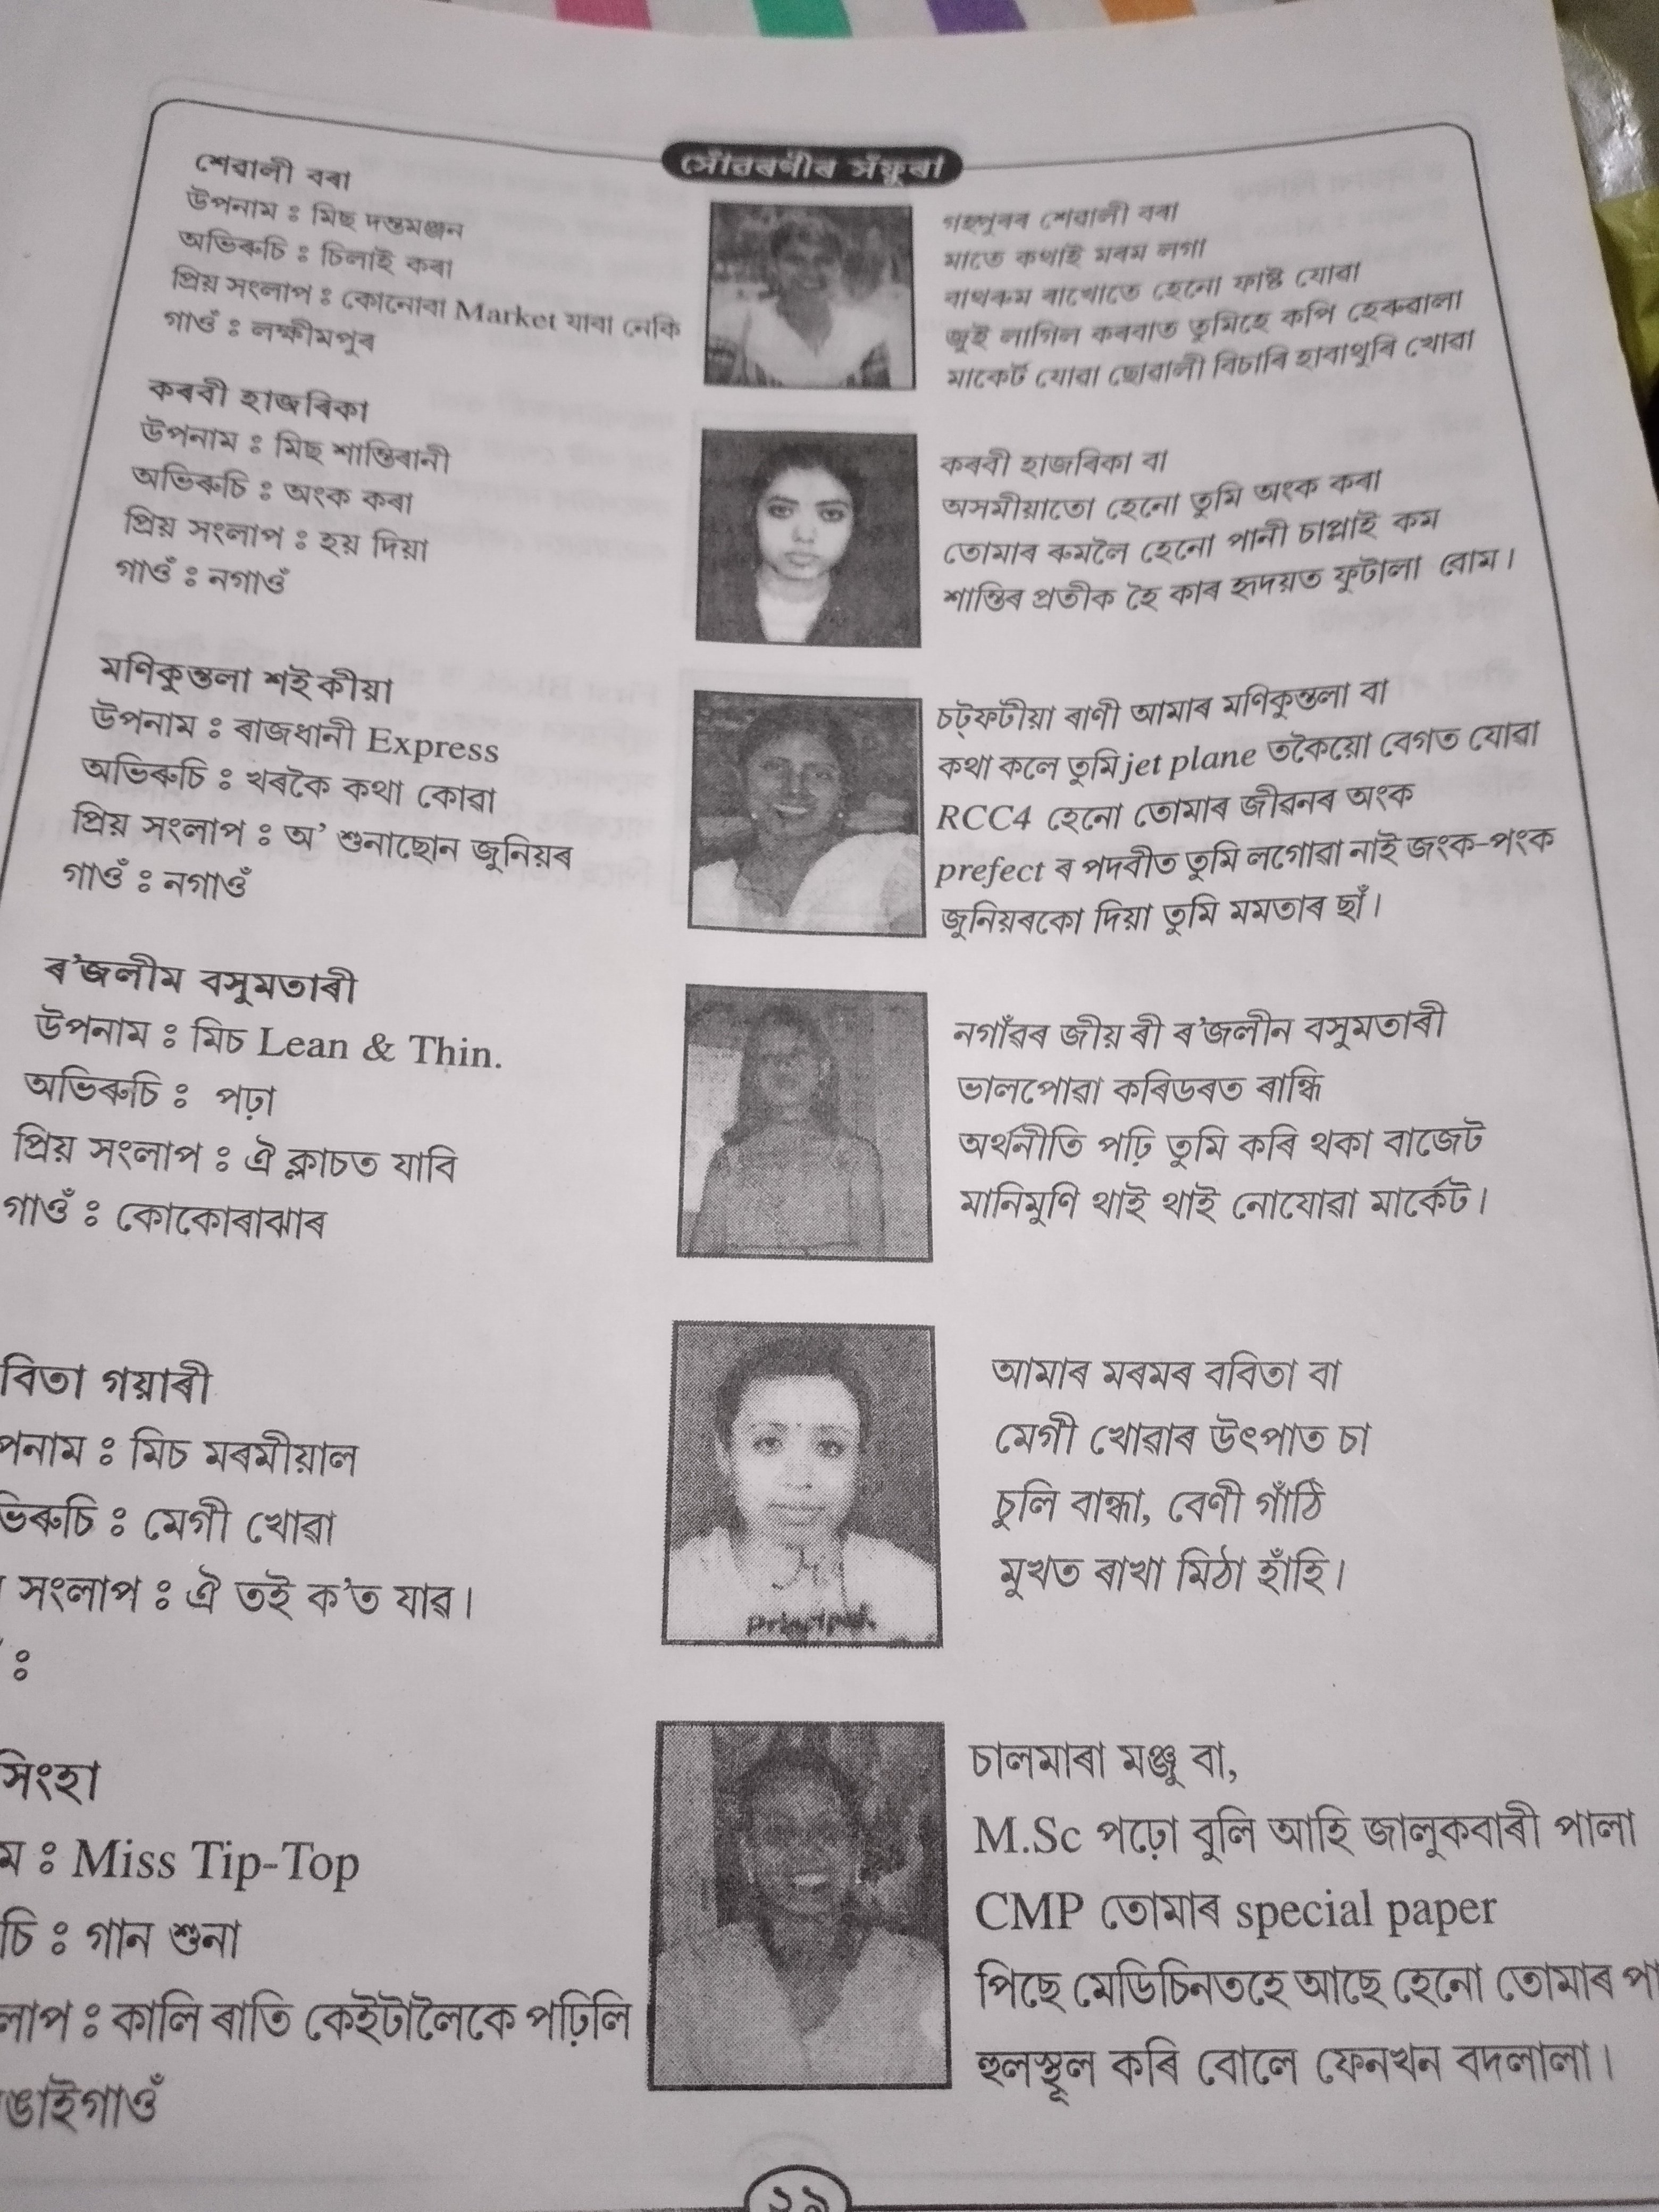 সোঁৱৰণীৰ সঁফুৰা
শেৱালী বৰা
উপনাম : মিছ দন্তমঞ্জন
অভিৰুচি : চিলাই কৰা
প্ৰিয় সংলাপ : কোনোবা Market যাবা নেকি
গাওঁ : লক্ষীমপুৰ
গহপুৰৰ শেৱালী বৰা
মাতে কথাই মৰম লগা
বাথৰুম ৰাখোতে হেনো ফাষ্ট যোৱা
জুই লাগিল কৰবাত তুমিহে কপি হেৰুৱালা
মাকেৰ্ট যোৱা ছোৱালী বিচাৰি হাবাথুৰি খোৱা
কৰবী হাজৰিকা
উপনাম : মিছ শান্তিৰানী
অভিৰুচি : অংক কৰা
প্ৰিয় সংলাপ : হয় দিয়া
গাওঁ : নগাওঁ
কৰবী হাজৰিকা বা
অসমীয়াতো হেনো তুমি অংক কৰা
তোমাৰ ৰুমলৈ হেনো পানী চাপ্লাই কম
শান্তিৰ প্ৰতীক হৈ কাৰ হৃদয়ত ফুটালা বোম।
মণিকুন্তলা শইকীয়া
উপনাম : ৰাজধানী Express
অভিৰুচি : খৰকৈ কথা কোৱা
প্ৰিয় সংলাপ : অ’ শুনাছোন জুনিয়ৰ
গাওঁ : নগাওঁ
চট্‌ফটীয়া ৰাণী আমাৰ মণিকুন্তলা বা
কথা কলে তুমি jet plane তকৈয়ো বেগত যোৱা
RCC4 হেনো তোমাৰ জীৱনৰ অংক
prefect ৰ পদবীত তুমি লগোৱা নাই জংক-পংক
জুনিয়ৰকো দিয়া তুমি মমতাৰ ছাঁ।
ৰ’জলীম বসুমতাৰী
উপনাম : মিচ Lean & Thin.
অভিৰুচি : পঢ়া
প্ৰিয় সংলাপ : ঐ ক্লাচত যাবি
গাওঁ : কোকোৰাঝাৰ
নগাঁৱৰ জীয়ৰী ৰ’জলীন বসুমতাৰী
ভালপোৱা কৰিডৰত ৰান্ধি
অৰ্থনীতি পঢ়ি তুমি কৰি থকা বাজেট
মানিমুণি থাই থাই নোযোৱা মাৰ্কেট।
বিতা গয়াৰী
পনাম : মিচ মৰমীয়াল
ভিৰুচি : মেগী খোৱা
সংলাপ : ঐ তই ক’ত যাৱ।
:
আমাৰ মৰমৰ ববিতা বা
মেগী খোৱাৰ উৎপাত চা
চুলি বান্ধা, বেণী গাঁঠি
মুখত ৰাখা মিঠা হাঁহি।
সিংহা
ম : Miss Tip-Top
চি : গান শুনা
লাপ : কালি ৰাতি কেইটালৈকে পঢ়িলি
ঙাইগাওঁ
চালমাৰা মঞ্জু বা,
M.Sc পঢ়ো বুলি আহি জালুকবাৰী পালা
CMP তোমাৰ special paper
পিছে মেডিচিনতহে আছে হেনো তোমাৰ পা
হুলস্থূল কৰি বোলে ফেনখন বদলালা।
২৯